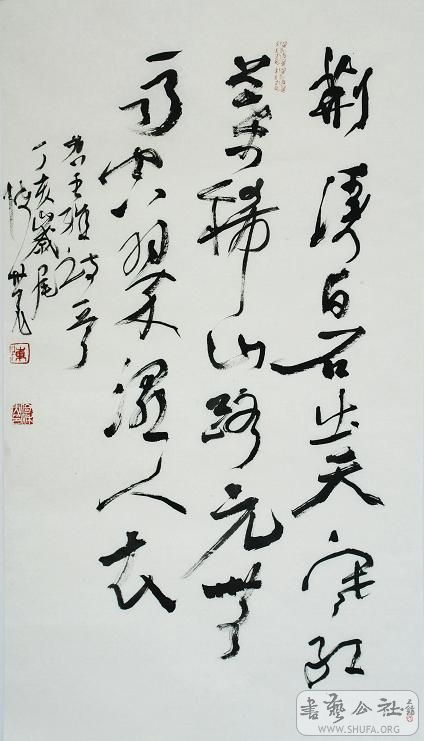 荆溪白石出天寒紅
葉稀山路元無
雨空翠濕人衣
書王維詩
丁亥歲尾
書藝公社
WWW.SHUFA.ORG